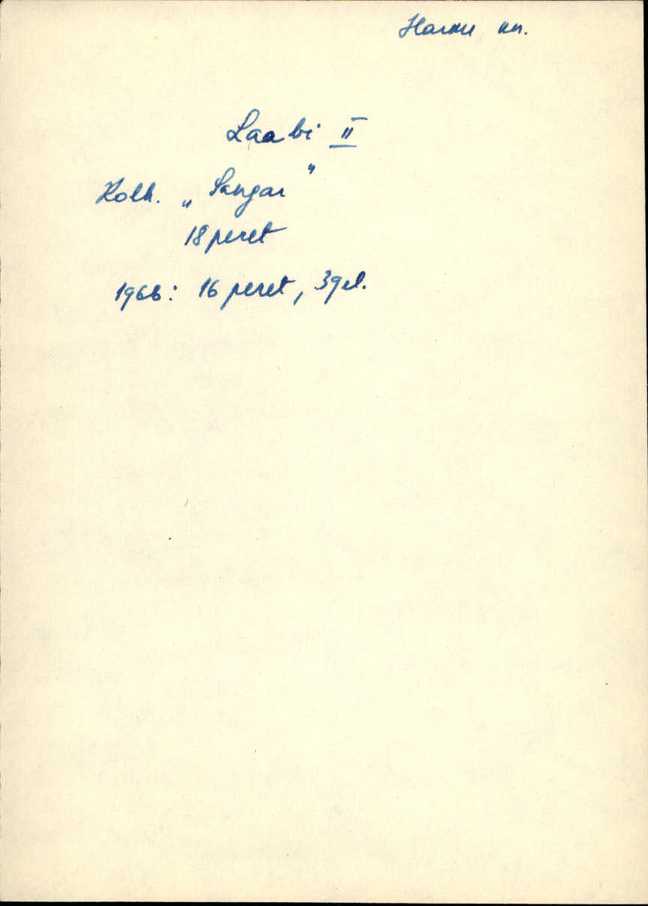 Harku kn.
Laabi II
Kolh. „Sangar"
18 peret
1966: 16 peret, 39 el.